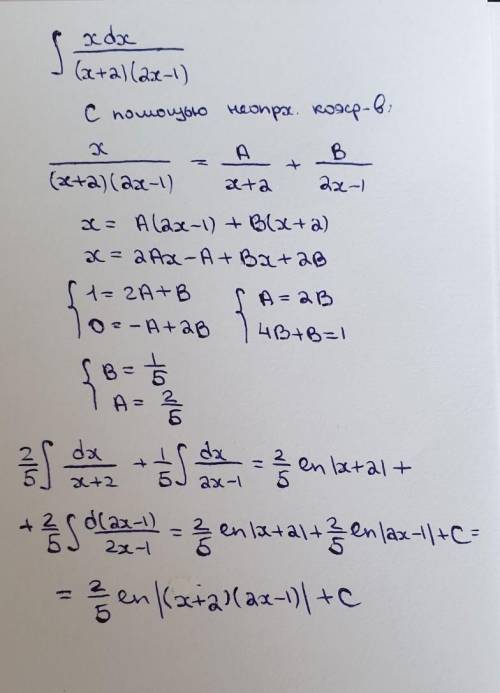 ∫ xdx / (x+2)(2x-1)
С помощью неопр. коэф-в:
x / (x+2)(2x-1) = A / x+2 + B / 2x-1
x = A(2x-1) + B(x+2)
x = 2Ax-A+Bx+2B
{ 1=2A+B { A=2B
{ 0=-A+2B { 4B+B=1
{ B = 1/5
{ A = 2/5
2/5 ∫ dx / x+2 + 1/5 ∫ dx / 2x-1 = 2/5 ln|x+2| +
+ 2/5 ∫ d(2x-1) / 2x-1 = 2/5 ln|x+2| + 2/5 ln|2x-1| + C =
= 2/5 ln|(x+2)(2x-1)| + C